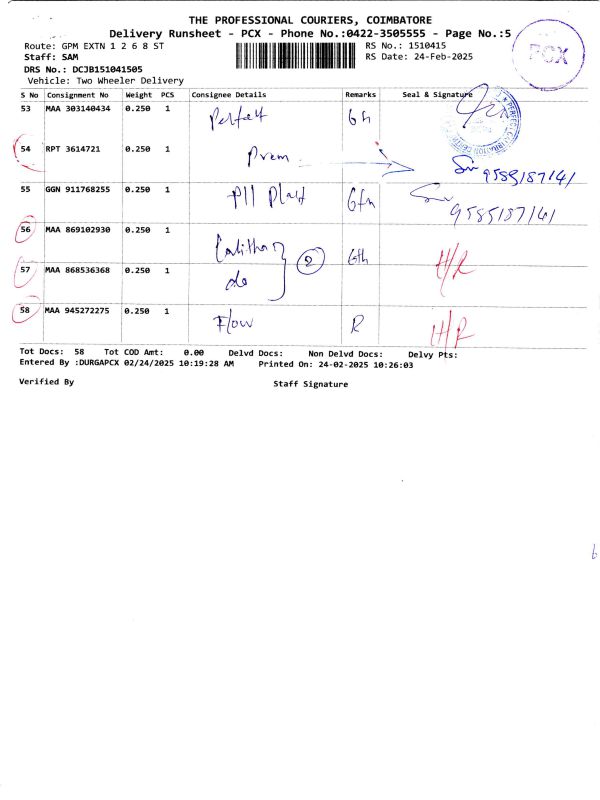 THE PROFESSIONAL COURIERS, COIMBATORE
Delivery Runsheet - PCX - Phone No.:0422-3505555 - Page No.:5
Route: GPM EXTN 1 2 6 8 ST RS No.: 1510415
Staff: SAM RS Date: 24-Feb-2025
DRS No.: DCJB151041505
Vehicle: Two Wheeler Delivery
PCX
S No Consignment No Weight PCS Consignee Details Remarks Seal & Signature
53 MAA 303140434 0.250 1 Perfect
54 RPT 3614721 0.250 1 Prem 9585187141
55 GGN 911768255 0.250 1 9585187141
56 MAA 869102930 0.250 1 2 H/R
57 MAA 868536368 0.250 1 do
58 MAA 945272275 0.250 1 Flow R H/R
Tot Docs: 58 Tot COD Amt: 0.00 Delvd Docs: Non Delvd Docs: Delvy Pts:
Entered By :DURGAPCX 02/24/2025 10:19:28 AM Printed On: 24-02-2025 10:26:03
Verified By Staff Signature